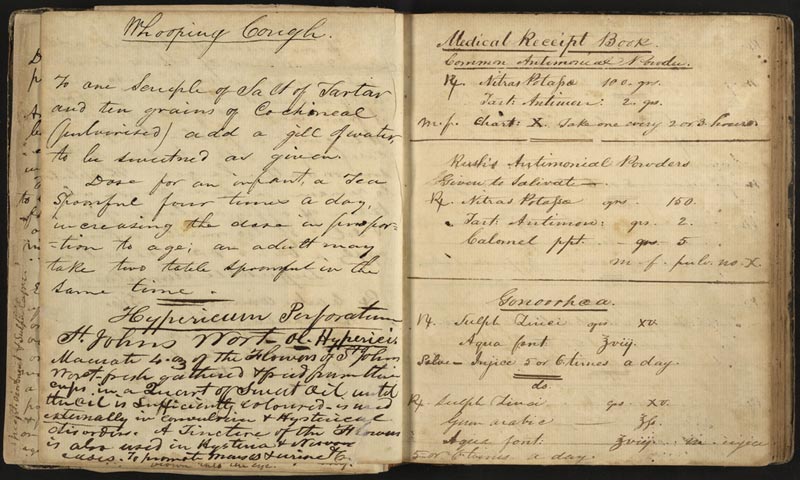 Whooping Cough.
To one Scruple of Salt of Tartar
and ten grains of Cochineal
(pulverised) add a gill of water
to be sweetned as given.
Dose for an infant, a Tea
Spoonful four times a day,
increasing the dose in propor-
-tion to age; an adult may
take two table spoonful in the
same time.
Hypericum Perforatum
St. Johns Wort Ol. Hyperici
Macerate 4 oz of the Flowers of St Johns
Wort fresh gathered & freed from their
cups in a Quart of Sweet Oil until
the Oil is Sufficiently coloured - is used
externally in convulsive & Hysterical
disorders. A Tincture of the Flowers
is also used in Hysteria & Nervous
cases. To promote Menses & urine &c.
Medical Receipt Book.
Common Antimonial Powder.
℞ Nitras Potassæ 100. grs.
Tart. Antimon: 2. grs.
m. f. Chart: X. Take one every 2 or 3 hours.
Rush's Antimonial Powders
Given to Salivate
℞. Nitras Potassæ grs. 150.
Tart: Antimon: grs. 2.
Calomel ppt. grs. 5
m. f. pulv. no. X.
Gonorrhœa.
℞. Sulph Zinci grs xv.
Aqua font ℥viij.
Solve - Injice 5 or 6 times a day.
do.
℞ Sulph Zinci grs. xv.
Gum arabic ℥ß.
Aqua font: ℥viij. m. injice
5 or 6 times a day.